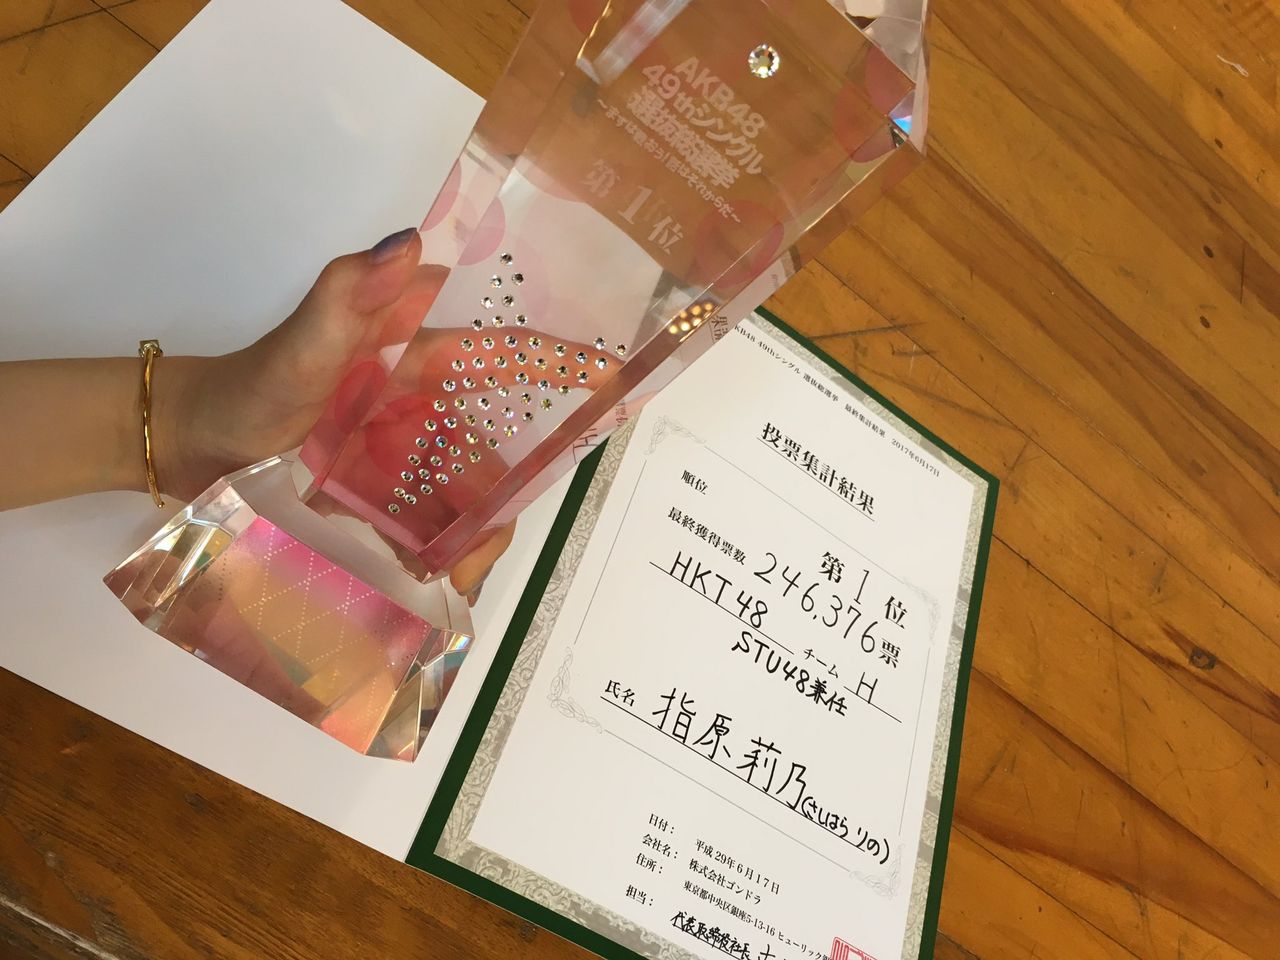 AKB48
49thシングル
選抜総選挙
～まずは戦おう！話はそれからだ～
第1位
AKB48 49thシングル 選抜総選挙 最終集計結果 2017年6月17日
投票集計結果
順位 第1位
最終獲得票数 246,376票
HKT48 チーム H
STU48兼任
氏名 指原莉乃(さしはら りの)
日付： 平成29年6月17日
会社名： 株式会社ゴンドラ
住所： 東京都中央区銀座5-13-16 ヒューリック
担当： 代表取締役社長